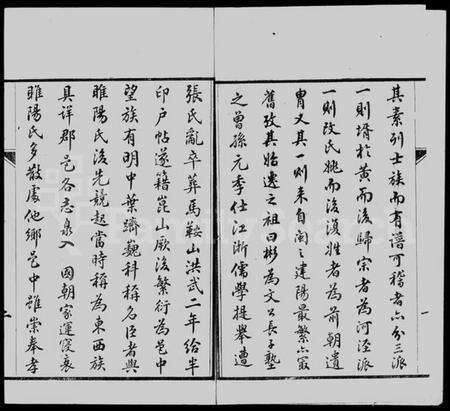 其素列士族而有譜可稽者六分三派
一則壻於黃而後歸宗者為河涇派
一則改氏姚而後復姓者為前朝遺
胄又其一則來自閩之建陽最繁亦最
舊攷其始遷之祖曰彬為文公長子塾
之曾孫元季仕江浙儒學提舉遭
張氏亂卒葬馬鞍山洪武二年給半
印戶帖遂籍崑山厥後繁衍為邑中
望族有明中葉躋巍科稱名臣者與
睢陽氏後先競起當時稱為東西族
具詳郡邑各志泉入 國朝家運寖衰
睢陽氏多散處他鄉邑中雖崇奉孝
一